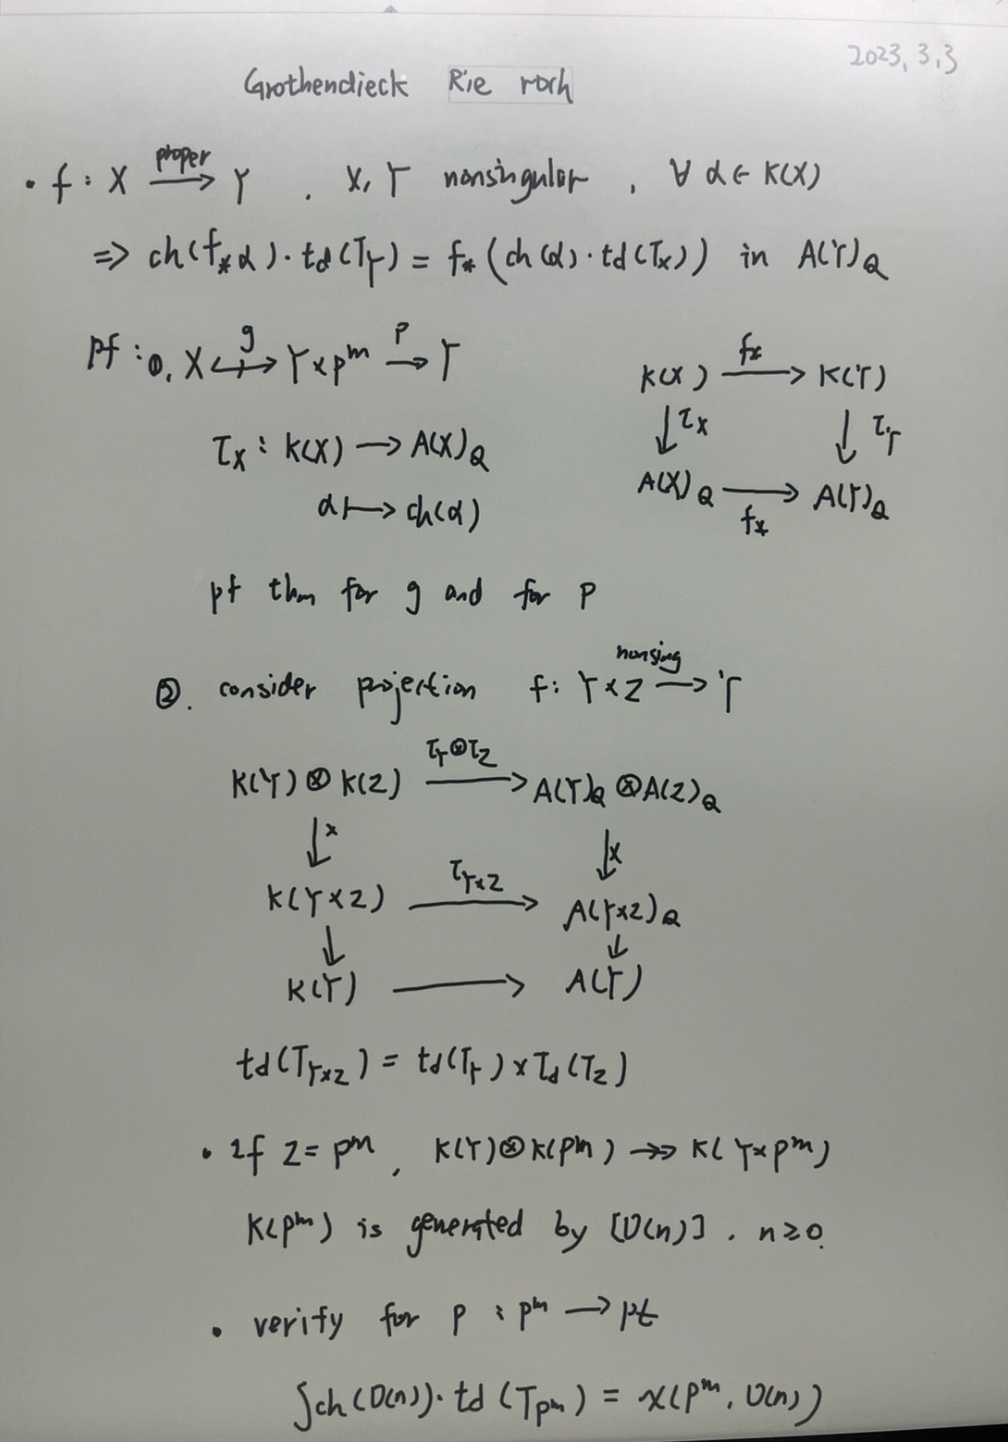 2023, 3.3
Grothendieck Rie roch
• f : X \xrightarrow{proper} Y , X, Y nonsingular , ∀ α ∈ K(X)
⇒ ch(f_*α)·td(T_Y) = f_*(ch(α)·td(T_X)) in A(Y)_Q
pf : ①. X \xhookrightarrow{g} Y × P^m \xrightarrow{p} Y
K(X) \xrightarrow{f_*} K(Y)
↓ τ_X ↓ τ_Y
A(X)_Q \xrightarrow{f_*} A(Y)_Q
τ_X : K(X) → A(X)_Q
α ↦ ch(α)
pf thm for g and for p
②. consider projection f : Y × Z \xrightarrow{nonsing} Y
K(Y) ⊗ K(Z) \xrightarrow{τ_Y ⊗ τ_Z} A(Y)_Q ⊗ A(Z)_Q
↓ × ↓ ×
K(Y × Z) \xrightarrow{τ_{Y×Z}} A(Y×Z)_Q
↓ ↓
K(Y) → A(Y)
td(T_{Y×Z}) = td(T_Y) × Td(T_Z)
• If Z = P^m , K(Y) ⊗ K(P^m) ↠ K(Y × P^m)
K(P^m) is generated by [O(n)] . n ≥ 0.
• verify for p : P^m → pt
∫ch(O(n))·td(T_{P^m}) = χ(P^m, O(n))